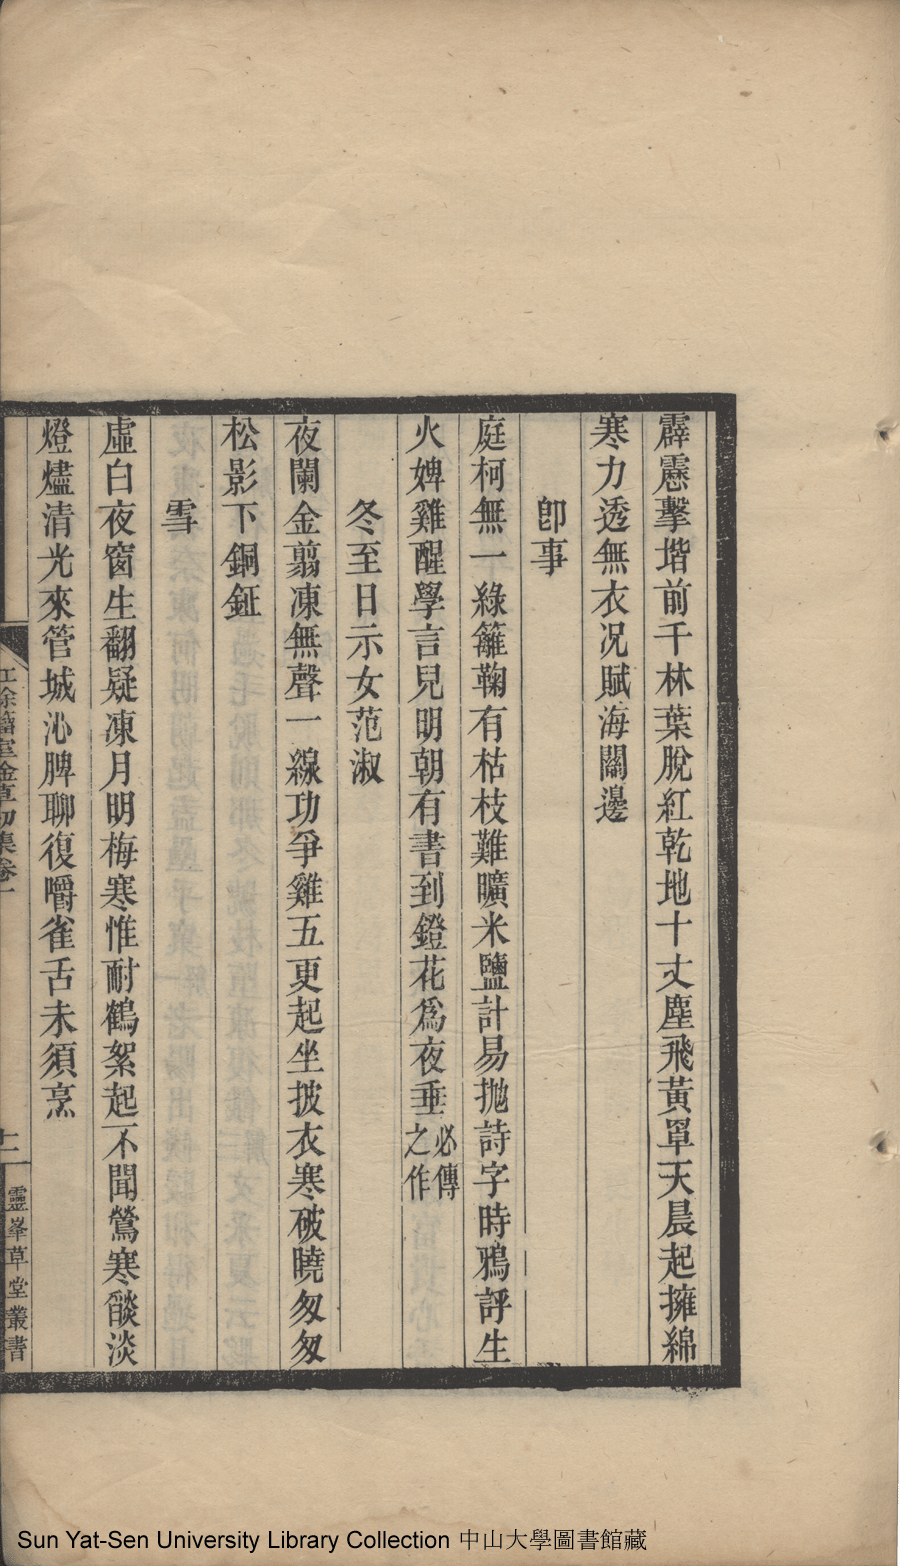 霹靂擊堦前千林葉脫紅乾地十丈塵飛黃罩天晨起擁綿
寒力透無衣况賦海關邊
卽事
庭柯無一綠籬鞠有枯枝難曠米鹽計易拋詩字時鴉評生
火婢雞醒學言兒明朝有書到鐙花爲夜垂必傳之作
冬至日示女范淑
夜闌金翦凍無聲一線功爭雞五更起坐披衣寒破曉匆匆
松影下銅鉦
雪
虛白夜窗生翻疑凍月明梅寒惟耐鶴絮起不聞鶯寒餤淡
燈燼清光來管城沁脾聊復嚼雀舌未須烹
集卷一
十一
靈峯草堂叢書
Sun Yat-Sen University Library Collection 中山大學圖書館藏